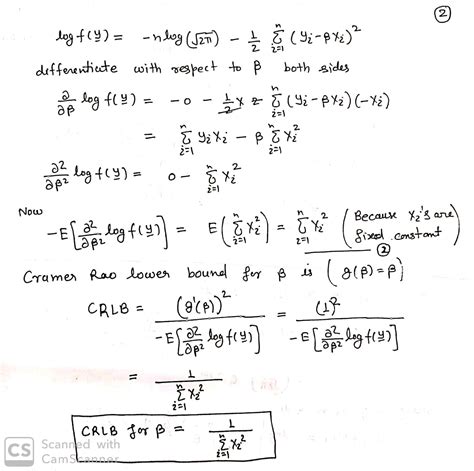 ②
log f(y) = -n log(√2π) - 1/2 Σ_{i=1}^{n} (yi - βxi)²
differentiate with respect to β both sides
∂/∂β log f(y) = -0 - 1/2 × 2 Σ_{i=1}^{n} (yi - βxi)(-xi)
= Σ_{i=1}^{n} yixi - β Σ_{i=1}^{n} xi²
∂²/∂β² log f(y) = 0 - Σ_{i=1}^{n} xi²
Now
-E[∂²/∂β² log f(y)] = E(Σ_{i=1}^{n} xi²) = Σ_{i=1}^{n} xi² (Because xi's are fixed constant)
②
Cramer Rao lower bound for β is (g(β) = β)
CRLB = (g'(β))² / -E[∂²/∂β² log f(y)] = (1)² / -E[∂²/∂β² log f(y)]
= 1 / Σ_{i=1}^{n} xi²
CRLB for β = 1 / Σ_{i=1}^{n} xi²
CS Scanned with
CamScanner